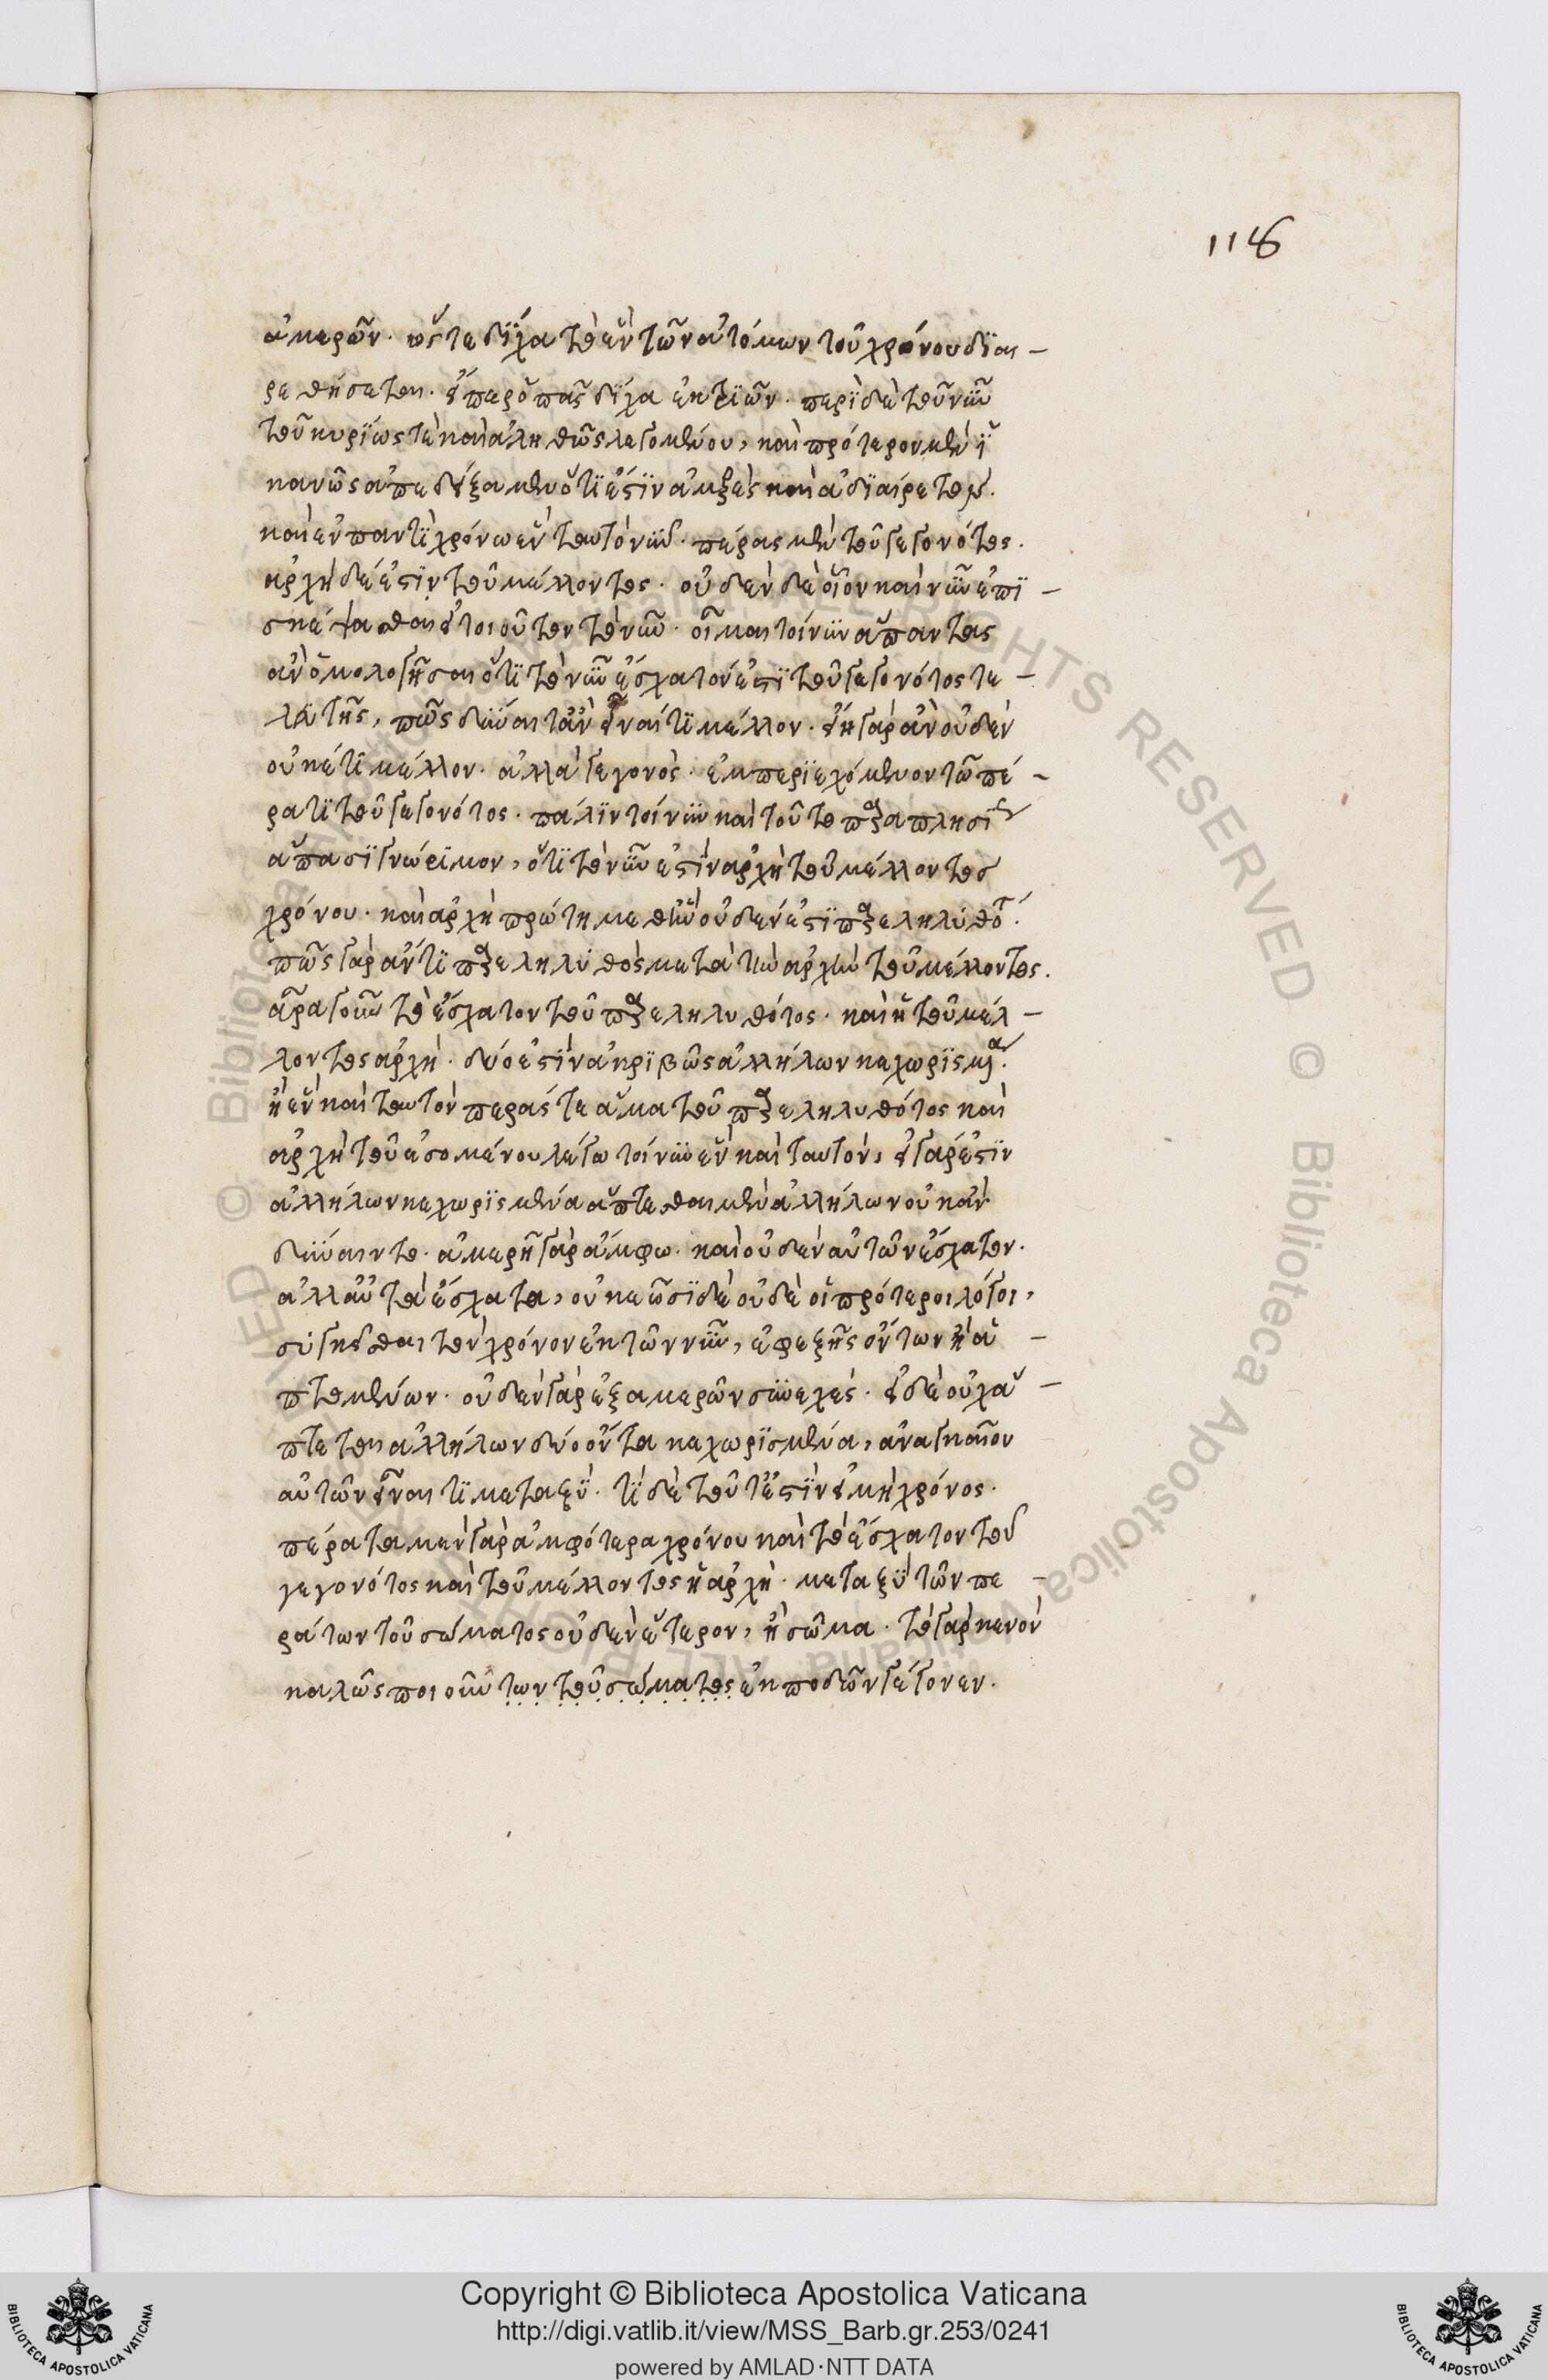 118
ἀμερῶν. ὥστε δίχα τὸ ἓν τῶν ἀτόμων τοῦ χρόνου διαι-
ρεθήσεται. εἴπερ ὁ πᾶς δίχα ἐκ τριῶν. περὶ δὲ τοῦ νῦν
τοῦ κυρίως τὲ καὶ ἀληθῶς λεγομένου, καὶ πρότερον μὲν ἱ
κανῶς ἀπεδείξαμεν ὅτι ἐστὶν ἀμερὲς καὶ ἀδιαίρετον.
καὶ ἐν παντὶ χρόνω ἓν ταυτὸ νῦν. πέρας μὲν τοῦ γεγονότος.
ἀρχὴ δέ ἐστιν τοῦ μέλλοντος. οὐδὲν δὲ οἷον καὶ νῦν ἐπι-
σκέψασθαι εἰ τοιοῦτον τὸ νῦν. οἶμαι τοίνυν ἅπαντας
ἂν ὁμολογῆσαι ὅτι τὸ νῦν ἔσχατόν ἐστι τοῦ γεγονότος τε-
λευτῆς, πῶς δύναιτ' ἂν εἶναί τι μέλλον. εἴη γὰρ ἂν οὐδὲν
οὐκέτι μέλλον. ἀλλὰ γεγονὸς. ἐμπεριεχόμενον τῶ πέ-
ρατι τοῦ γεγονότος. πάλιν τοίνυν καὶ τοῦτο παραπλησί
ἅπασι γνώριμον, ὅτι τὸ νῦν ἐστὶν ἀρχὴ τοῦ μέλλοντος
χρόνου. καὶ ἀρχὴ πρώτη μεθ' ἣν οὐδέν ἐστι παρεληλυθότ.
πῶς γὰρ ἄν τι παρεληλυθὸς μετὰ τὴν ἀρχὴν τοῦ μέλλοντος.
ἆρα γοῦν τὸ ἔσχατον τοῦ παρεληλυθότος. καὶ ἡ τοῦ μέλ-
λοντος ἀρχὴ. δύο ἐστὶν ἀκριβῶς ἀλλήλων κεχωρισμα.
ἢ ἓν καὶ ταυτὸν πέρας τε ἅμα τοῦ παρεληλυθότος καὶ
ἀρχὴ τοῦ ἐσομένου λέγω τοίνυν ἓν καὶ ταυτὸν, εἰ γάρ ἐστιν
ἀλλήλων κεχωρισμένα ἅπτεσθαι μὲν ἀλλήλων οὐκ ἂν
δύναιντο. ἀμερῆ γὰρ ἄμφω. καὶ οὐδὲν αὐτῶν ἔσχατον.
ἀλλ' αὐτὰ ἔσχατα, οὐκ ἐῶσι δὲ οὐδὲ οἱ πρότεροι λόγοι,
συγκεῖσθαι τὸν χρόνον ἐκ τῶν νῦν, ἐφεξῆς ὄντων ἢ ἁ-
πτομένων. οὐδὲν γὰρ ἐξ ἀμερῶν συνεχές. εἰ δὲ οὐχ ἅ-
πτεται ἀλλήλων δύο ὄντα κεχωρισμένα, ἀναγκαῖον
αὐτῶν εἶναι τι μεταξὺ. τί δὲ τοῦτ' ἐστὶν εἰ μὴ χρόνος.
πέρατα μὲν γὰρ ἀμφότερα χρόνου καὶ τὸ ἔσχατον τοῦ
γεγονότος καὶ τοῦ μέλλοντος ἡ ἀρχὴ. μεταξὺ τῶν πε-
ράτων τοῦ σώματος οὐδὲν ἕτερον, ἢ σῶμα. τὸ γὰρ κενὸν
καλῶς ποιοῦν των τοῦ σώματος ἐκ ποδῶν γέγονεν.
© Biblioteca Apostolica Vaticana. ALL RIGHTS RESERVED
Copyright © Biblioteca Apostolica Vaticana
http://digi.vatlib.it/view/MSS_Barb.gr.253/0241
powered by AMLAD·NTT DATA
BIBLIOTECA APOSTOLICA VATICANA
BIBLIOTECA APOSTOLICA VATICANA